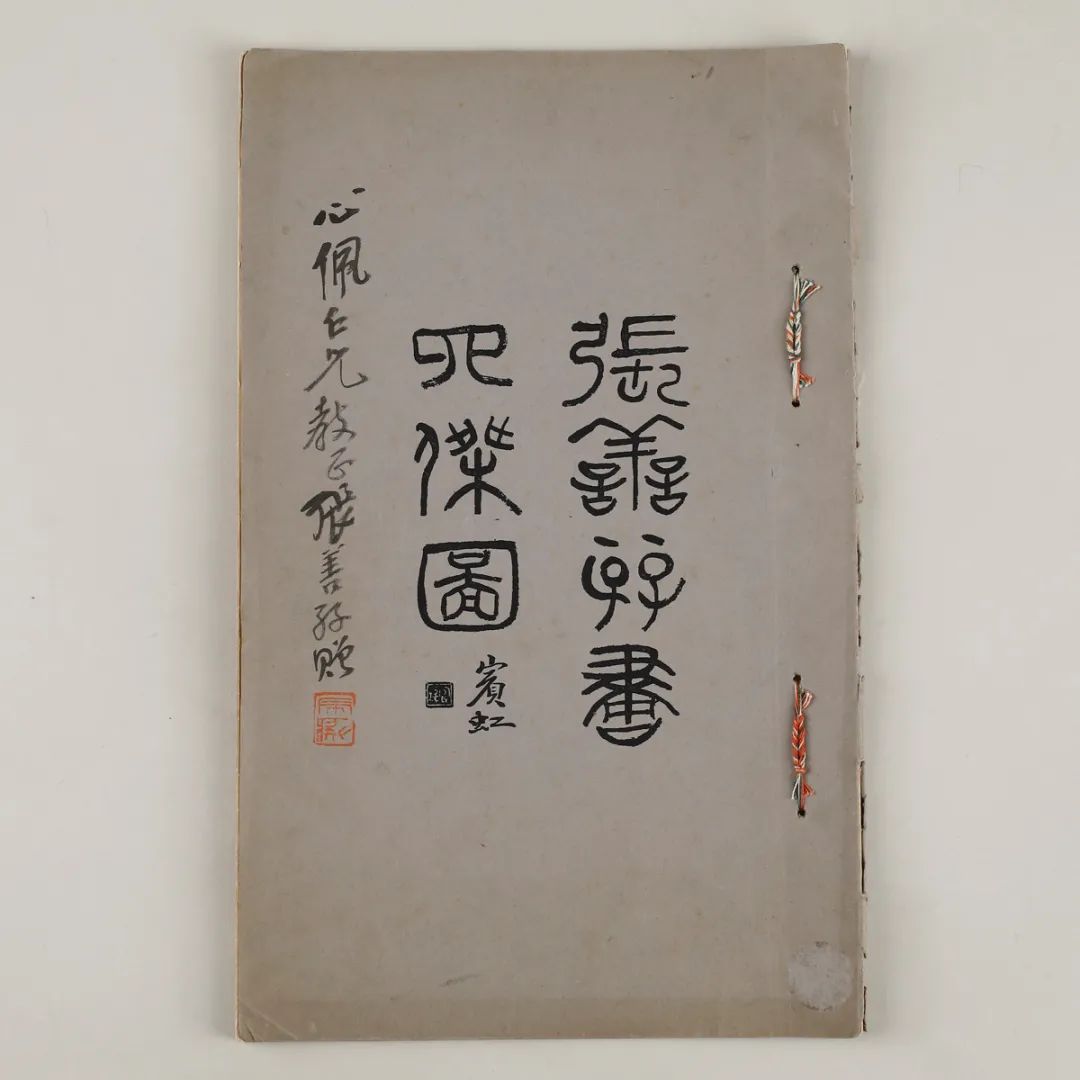 張善孖畫
四傑圖
賓虹
心佩仁兄教正張善孖贈